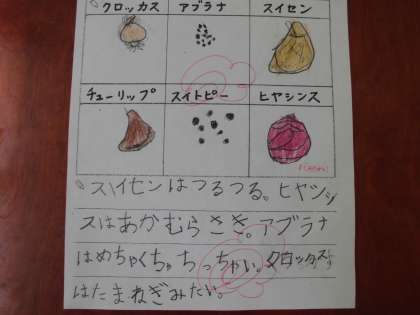 クロッカス アブラナ スイセン
チューリップ スイトピー ヒヤシンス
スイセンはつるつる。ヒヤシン
スはあかむらさき。アブラナ
はめちゃくちゃちっちゃい。クロッカス
はたまねぎみたい。